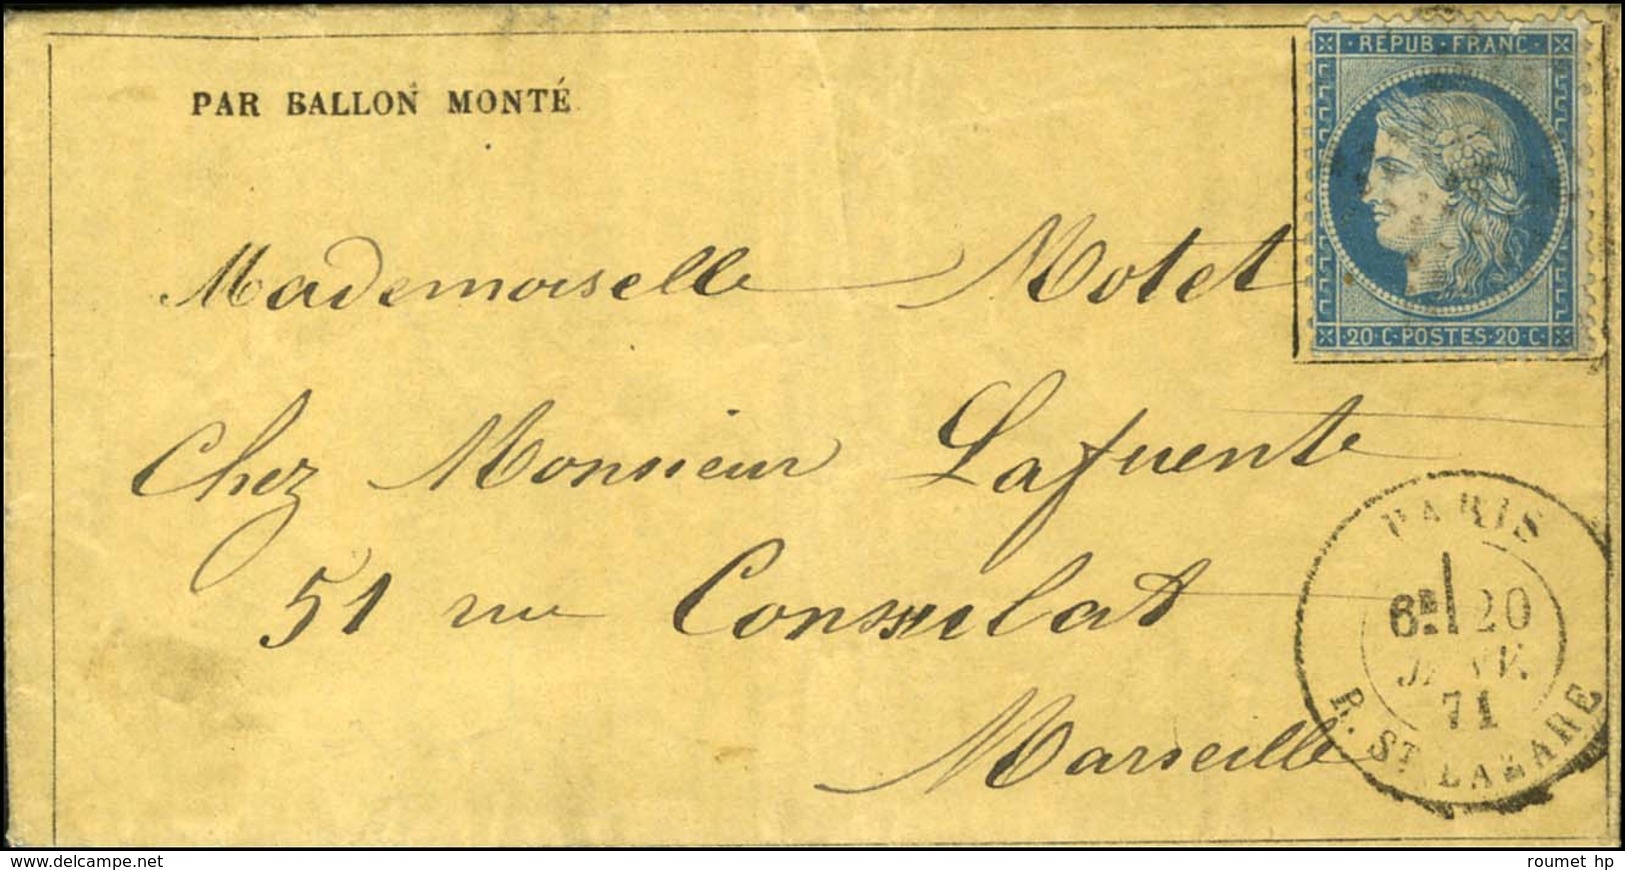 REPUB. FRANC.
PAR BALLON MONTÉ
Mademoiselle Motet
20·C·POSTES·20·C·
Chez Monsieur Lafuente
51 rue Consulat
Marseille
PARIS
6E 20
JANV.
71
R. ST LAZARE
www.delcampe.net
roumet hp